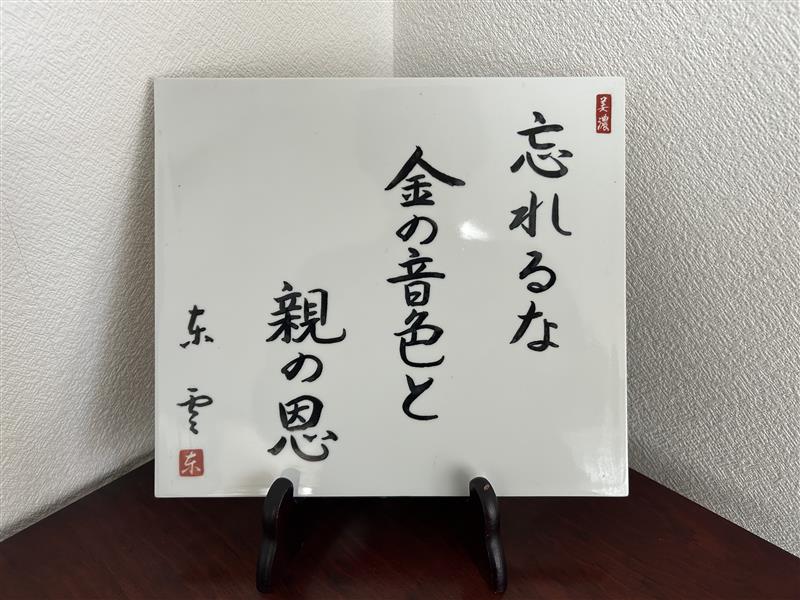 美濃
忘れるな
金の音色と
親の恩
东雲
东